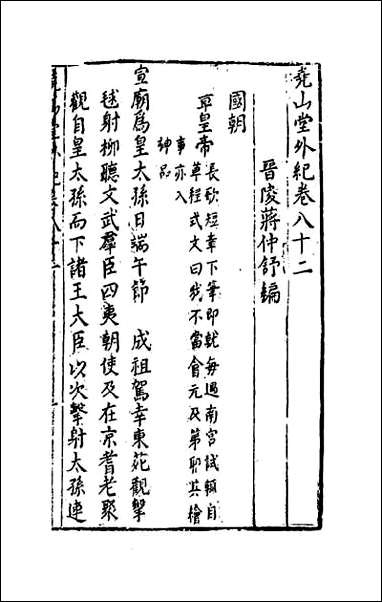 堯山堂外紀卷八十二
晉陵蔣仲舒編
國朝
章皇帝
長歌短章下筆即就每遇南宮試輒自
草程式文曰我不當會元及第耶其槍
事亦入
神品
宣廟爲皇太孫日端午節 成祖駕幸東苑觀擊
毬射柳聽文武羣臣四夷朝使及在京耆老聚
觀自皇太孫而下諸王大臣以次擊射太孫連